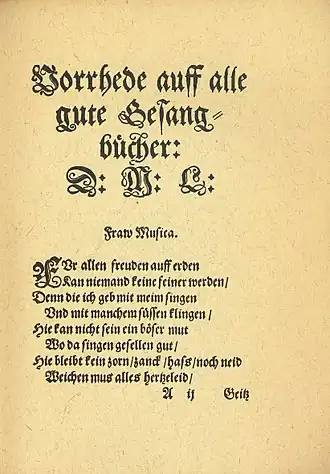 Vorrhede auff alle
gute Gesang-
bücher:
D: M: L:
Fraw Musica.
FUr allen freuden auff erden
Kan niemand keine feiner werden/
Denn die ich geb mit meim singen
Und mit manchem süssen klingen/
Hie kan nicht sein ein böser mut
Wo da singen gesellen gut/
Hie bleibt kein zorn/zanck/hass/noch neid
Weichen mus alles hertzeleid/
A ij Geitz